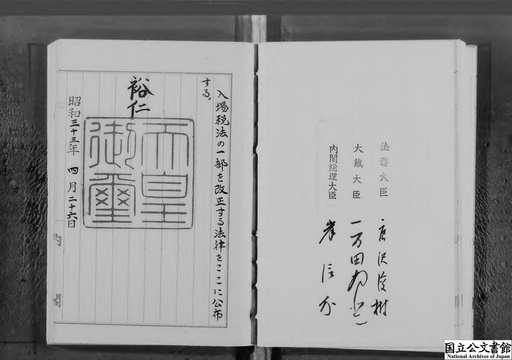 入場税法の一部を改正する法律をここに公布
する。
裕仁
天皇
御璽
昭和三十三年 四月二十六日
内閣
法務大臣
唐沢俊樹
大蔵大臣
一万田尚登
内閣総理大臣
岸信介
国立公文書館
National Archives of Japan